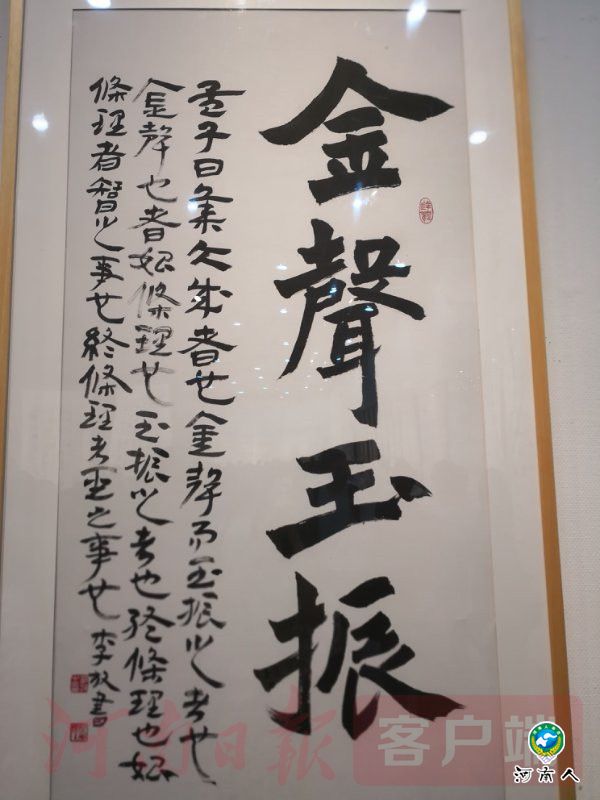 金聲玉振
孟子曰集大成者也金聲而玉振之者也
金聲也者始條理也玉振之者也終條理也始
條理者智之事也終條理者聖之事也 李 書
河南日报 客户端
河南人